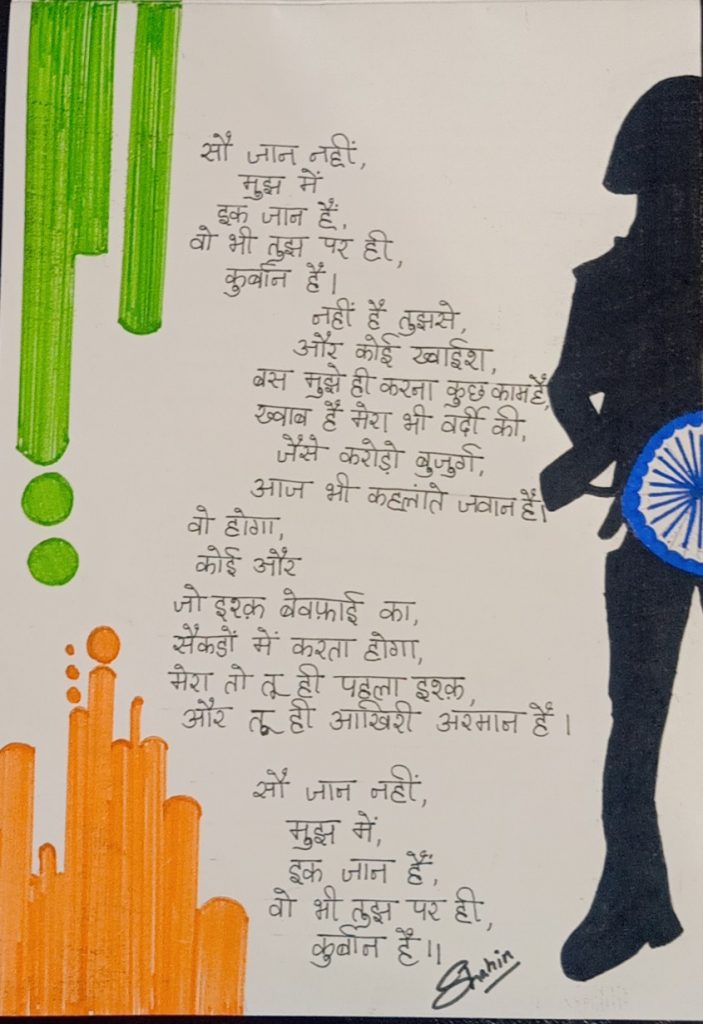 सौ जान नहीं,
मुझ में
इक जान हैं,
वो भी तुझ पर ही,
कुर्बान हैं।
नहीं हैं तुझसे,
और कोई ख्वाईश,
बस मुझे ही करना कुछ काम हैं,
ख्वाब हैं मेरा भी वर्दी की,
जैसे करोड़ो बुजुर्ग,
आज भी कहलांते जवान हैं।
वो होगा,
कोई और
जो इश्क़ बेवफ़ाई का,
सैकडों में करता होगा,
मेरा तो तू ही पहला इश्क़,
और तू ही आखिरी अरमान हैं।
सौ जान नहीं,
मुझ में,
इक जान हैं,
वो भी तुझ पर ही,
कुर्बान हैं॥
Shahin